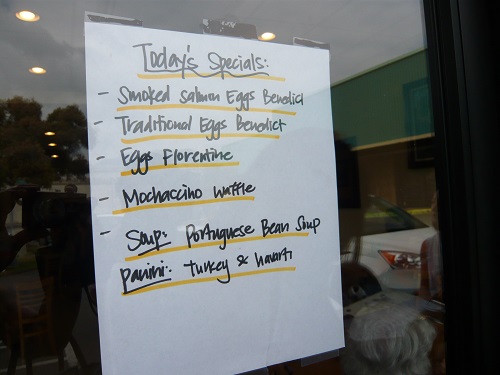 Today's Specials:
- Smoked Salmon Eggs Benedict
- Traditional Eggs Benedict
- Eggs Florentine
- Mochaccino Waffle
- Soup: Portuguese Bean Soup
Panini: Turkey & havarti